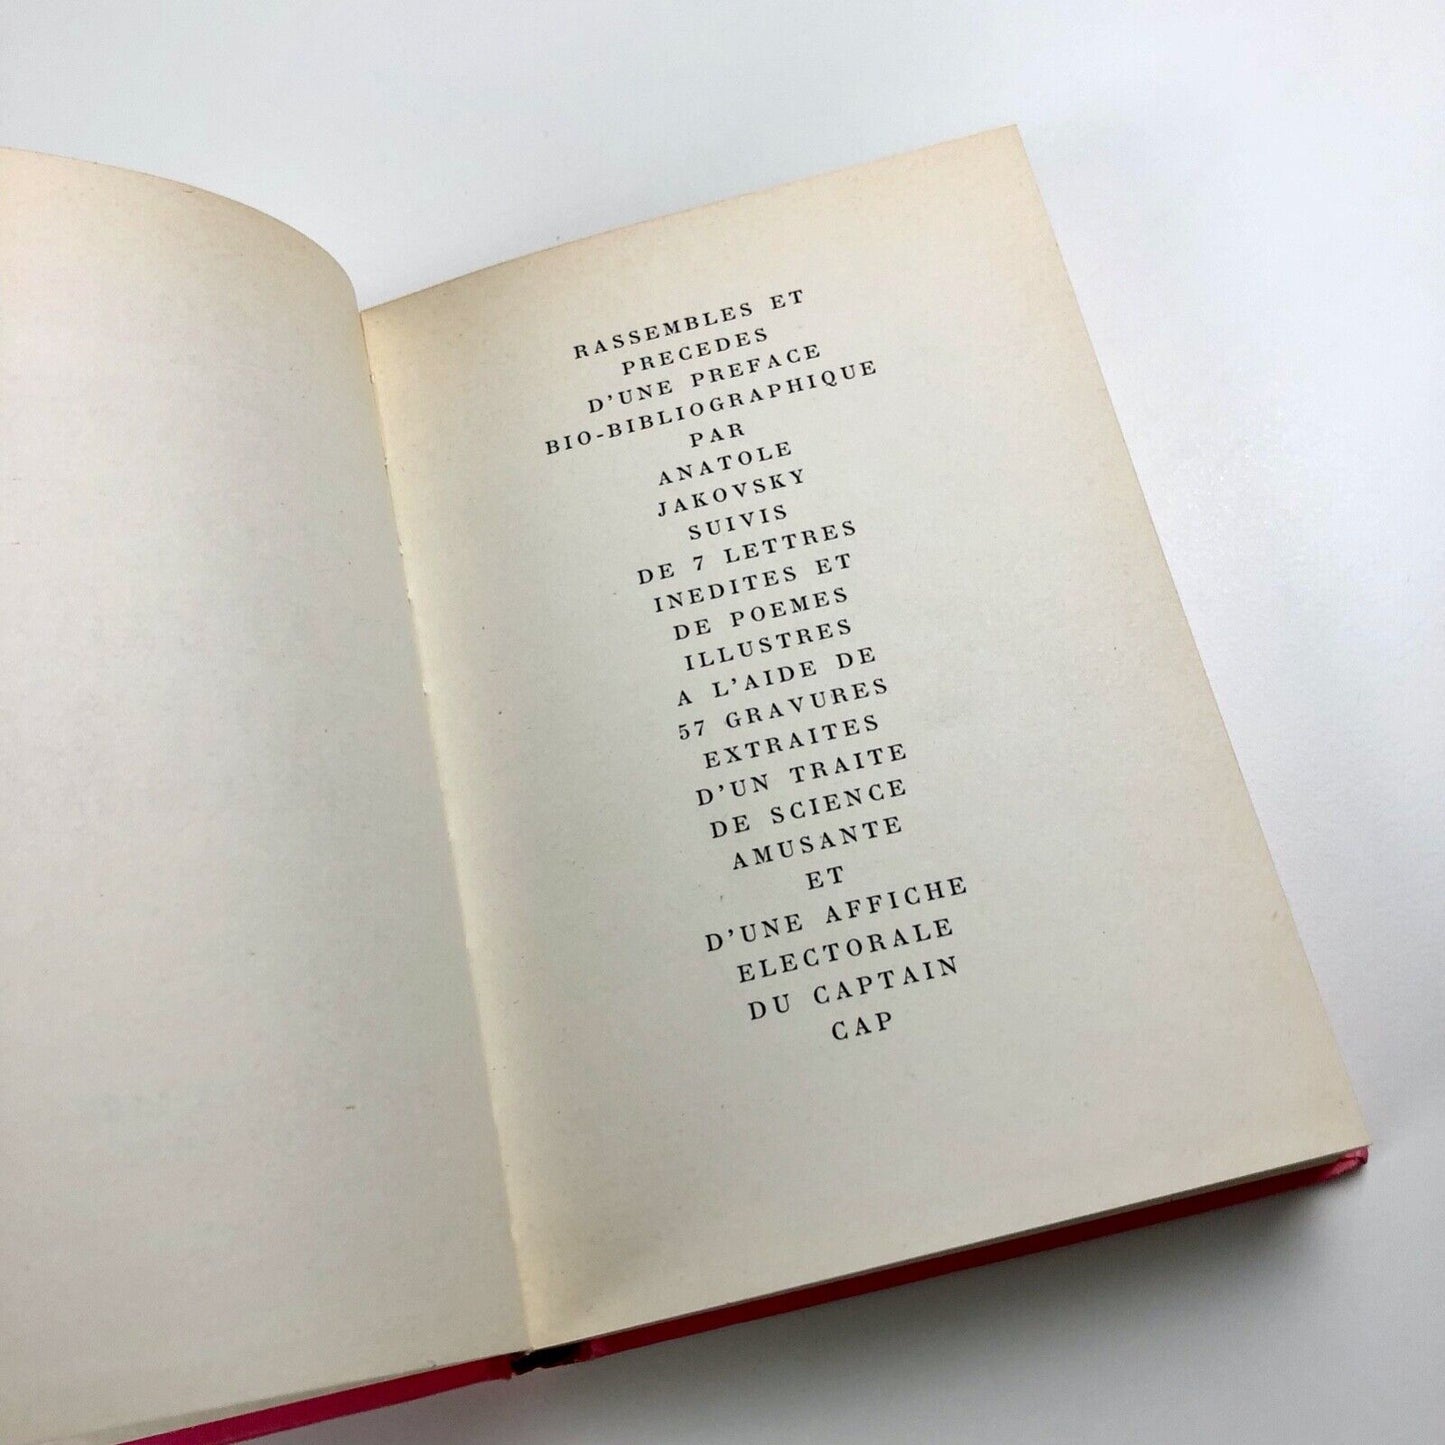 RASSEMBLES ET
PRECEDES
D'UNE PREFACE
BIO-BIBLIOGRAPHIQUE
PAR
ANATOLE
JAKOVSKY
SUIVIS
DE 7 LETTRES
INEDITES ET
DE POEMES
ILLUSTRES
A L'AIDE DE
57 GRAVURES
EXTRAITES
D'UN TRAITE
DE SCIENCE
AMUSANTE
ET
D'UNE AFFICHE
ELECTORALE
DU CAPTAIN
CAP